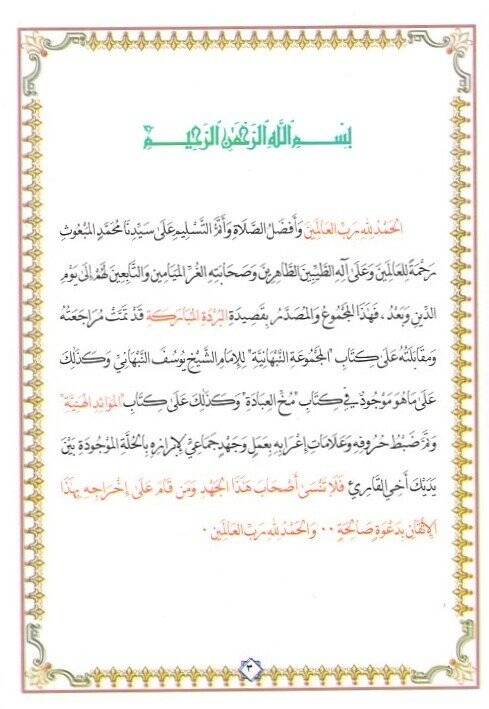 بِسْمِ اللَّهِ الرَّحْمَٰنِ الرَّحِيمِ
الحَمْدُ للهِ رَبِّ العَالَمِينَ وَأَفْضَلُ الصَّلَاةِ وَأَتَمُّ التَّسْلِيمِ عَلَى سَيِّدِنَا مُحَمَّدٍ المَبْعُوثِ
رَحْمَةً لِلعَالَمِينَ وَعَلَى آلِهِ الطَّيِّبِينَ الطَّاهِرِينَ وَصَحَابَتِهِ الغُرِّ المَيَامِينِ وَالتَّابِعِينَ لَهُمْ إِلَى يَوْمِ
الدِّينِ وَبَعْدُ ، فَهَذَا المَجْمُوعُ وَالمُصَدَّرُ بِقَصِيدَةِ البُرْدَةِ المُبَارَكَةِ قَدْ تَمَّتْ مُرَاجَعَتُهُ
وَمُقَابَلَتُهُ عَلَى كِتَابِ "المَجْمُوعَةِ النَّبْهَانِيَّةِ" لِلإِمَامِ الشَّيْخِ يُوسُفَ النَّبْهَانِيّ وَكَذَلِكَ
عَلَى مَا هُوَ مَوْجُودٌ فِي كِتَابِ "مُخِّ العِبَادَةِ" وَكَذَلِكَ عَلَى كِتَابِ "المَوَائِدِ الهَنِيَّةِ"
وَتَمَّ ضَبْطُ حُرُوفِهِ وَعَلَامَاتِ إِعْرَابِهِ بِعَمَلٍ وَجَهْدٍ جَمَاعِيٍّ لِإِبْرَازِهِ بِالحُلَّةِ المَوْجُودَةِ بَيْنَ
يَدَيْكَ أَخِي القَارِئَ فَلَا تَنْسَى أَصْحَابَ هَذَا الجَهْدِ وَمَنْ قَامَ عَلَى إِخْرَاجِهِ بِهَذَا
الإِتْقَانِ بِدَعْوَةٍ صَالِحَةٍ .. وَالحَمْدُ للهِ رَبِّ العَالَمِينَ .
٣